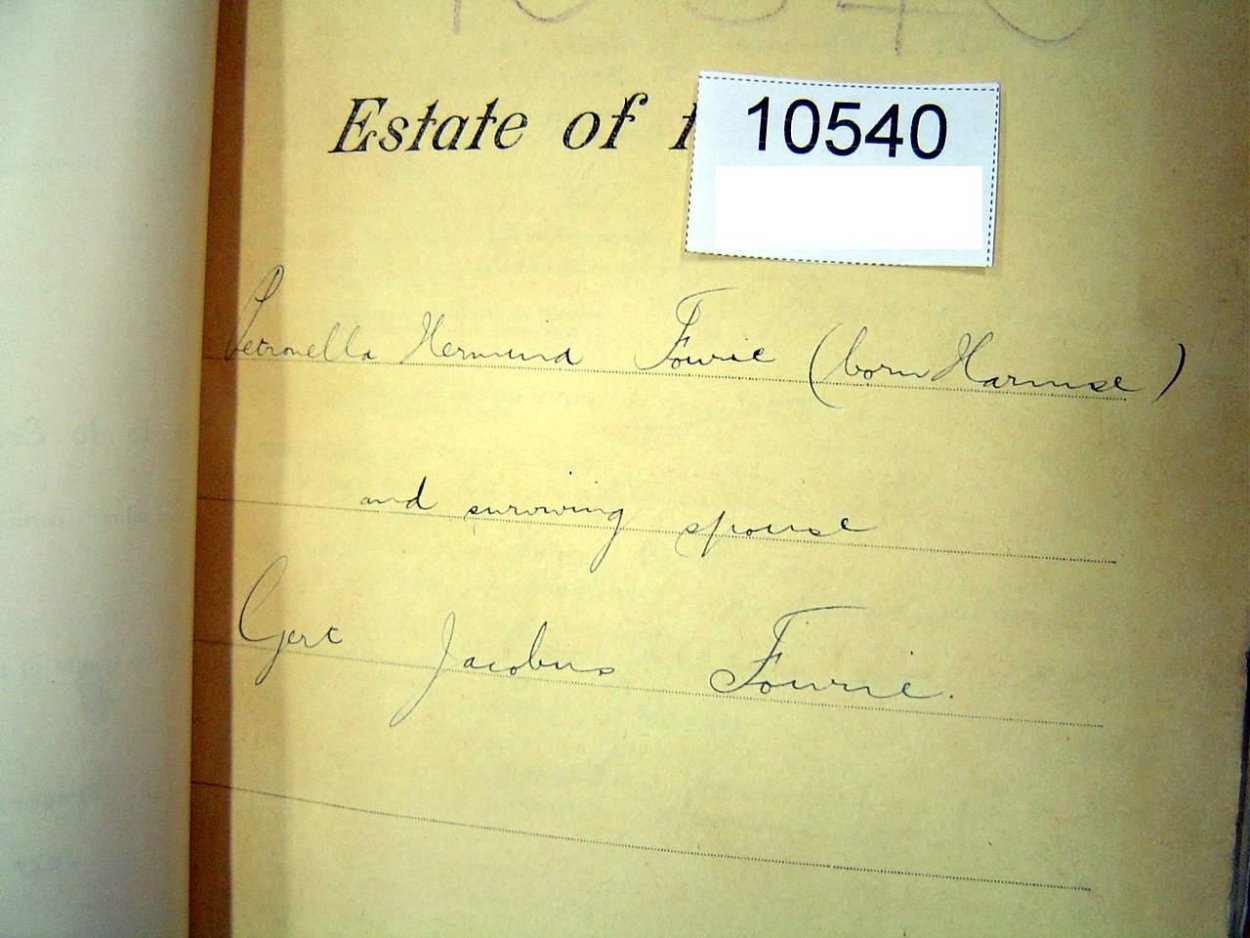 10540
Estate of
10540
Petronella Hermina Fourie (born Harmse)
and surviving spouse
Gert Jacobus Fourie.